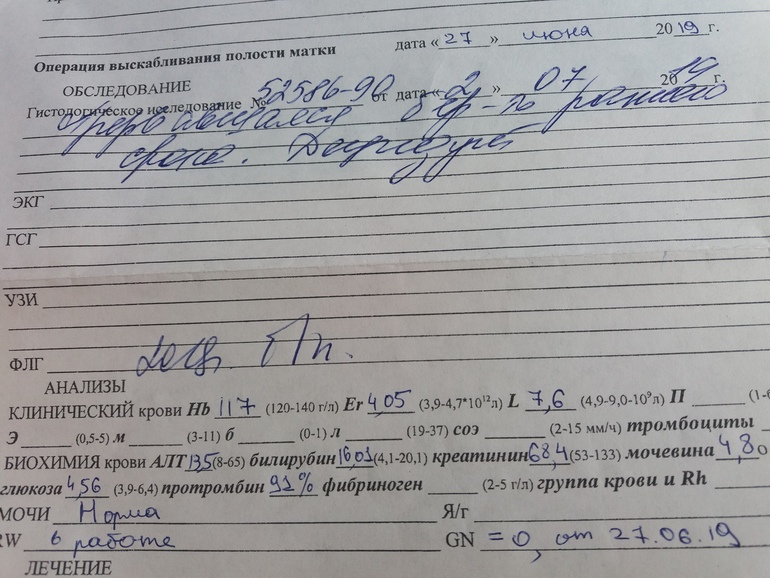 Операция выскабливания полости матки дата « 27 » июня 2019 г.
ОБСЛЕДОВАНИЕ
Гистологическое исследование № 52586-90 от дата « 2 » 07 2019 г.
раннего
срока.
ЭКГ
ГСГ
УЗИ
ФЛГ
АНАЛИЗЫ
КЛИНИЧЕСКИЙ крови Hb 117 (120-140 г/л) Er 4,05 (3,9-4,7*10¹²л) L 7,6 (4,9-9,0-10⁹л) П
Э (0,5-5) м (3-11) б (0-1) л (19-37) соэ (2-15 мм/ч) тромбоциты
БИОХИМИЯ крови АЛТ 13,5 (8-65) билирубин 16,01 (4,1-20,1) креатинин 68,4 (53-133) мочевина 4,8
глюкоза 4,56 (3,9-6,4) протромбин 91% фибриноген (2-5 г/л) группа крови и Rh
МОЧИ Норма Я/г
RW в работе GN =0, от 27.06.19
ЛЕЧЕНИЕ